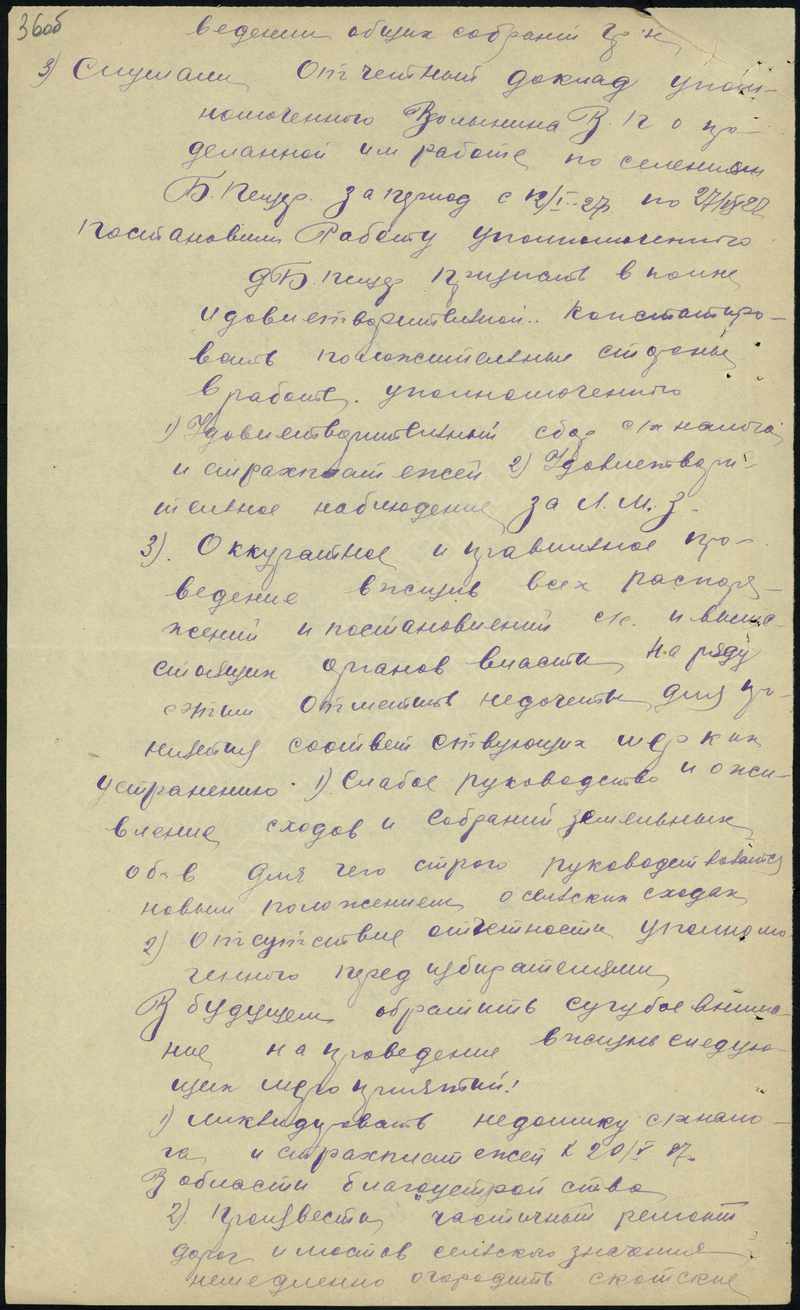 36об
ведении общих собраний гр-н
3) Слушали Отчетный доклад упол-
номоченного Волынина В. П о про-
деланной им работе по селениям
Б. Пещер. за период с 12/I-27 по
Постановили Работу уполномоченного
д Б. Пещер признать вполне
удовлетворительной.. Констатиро-
вать положительные стороны
в работе. уполномоченного
1) Удовлетворительный сбор с/х налога
и страхплатежей 2) Удовлетвори-
тельное наблюдение за Л. М. З.
3). Оккуратное и правильное про-
ведение вжизнь всех распоря-
жений и постановлений с/с. и выше-
стоящих органов власти, На ряду
сэтим отметить недочеты для при-
нятия соответствующих мер к их
устранению. 1) Слабое руководство и ожи-
вление сходов и собраний земельных
об-в для чего строго руководствоватся
новым положением о сельских сходах
2) Отсутствие отчетности уполномо-
ченного перед избирателями
В будущем обратить сугубое внима-
ние на проведение вжизнь следую-
щих меро приятий!
1) Ликвидировать недоимку с/хнало-
га и страхплатежей к 20/V 27.
В области благоустройства
2) Произвести частичный ремонт
дорог и мостов сельского значения
немедленно огородить скотские